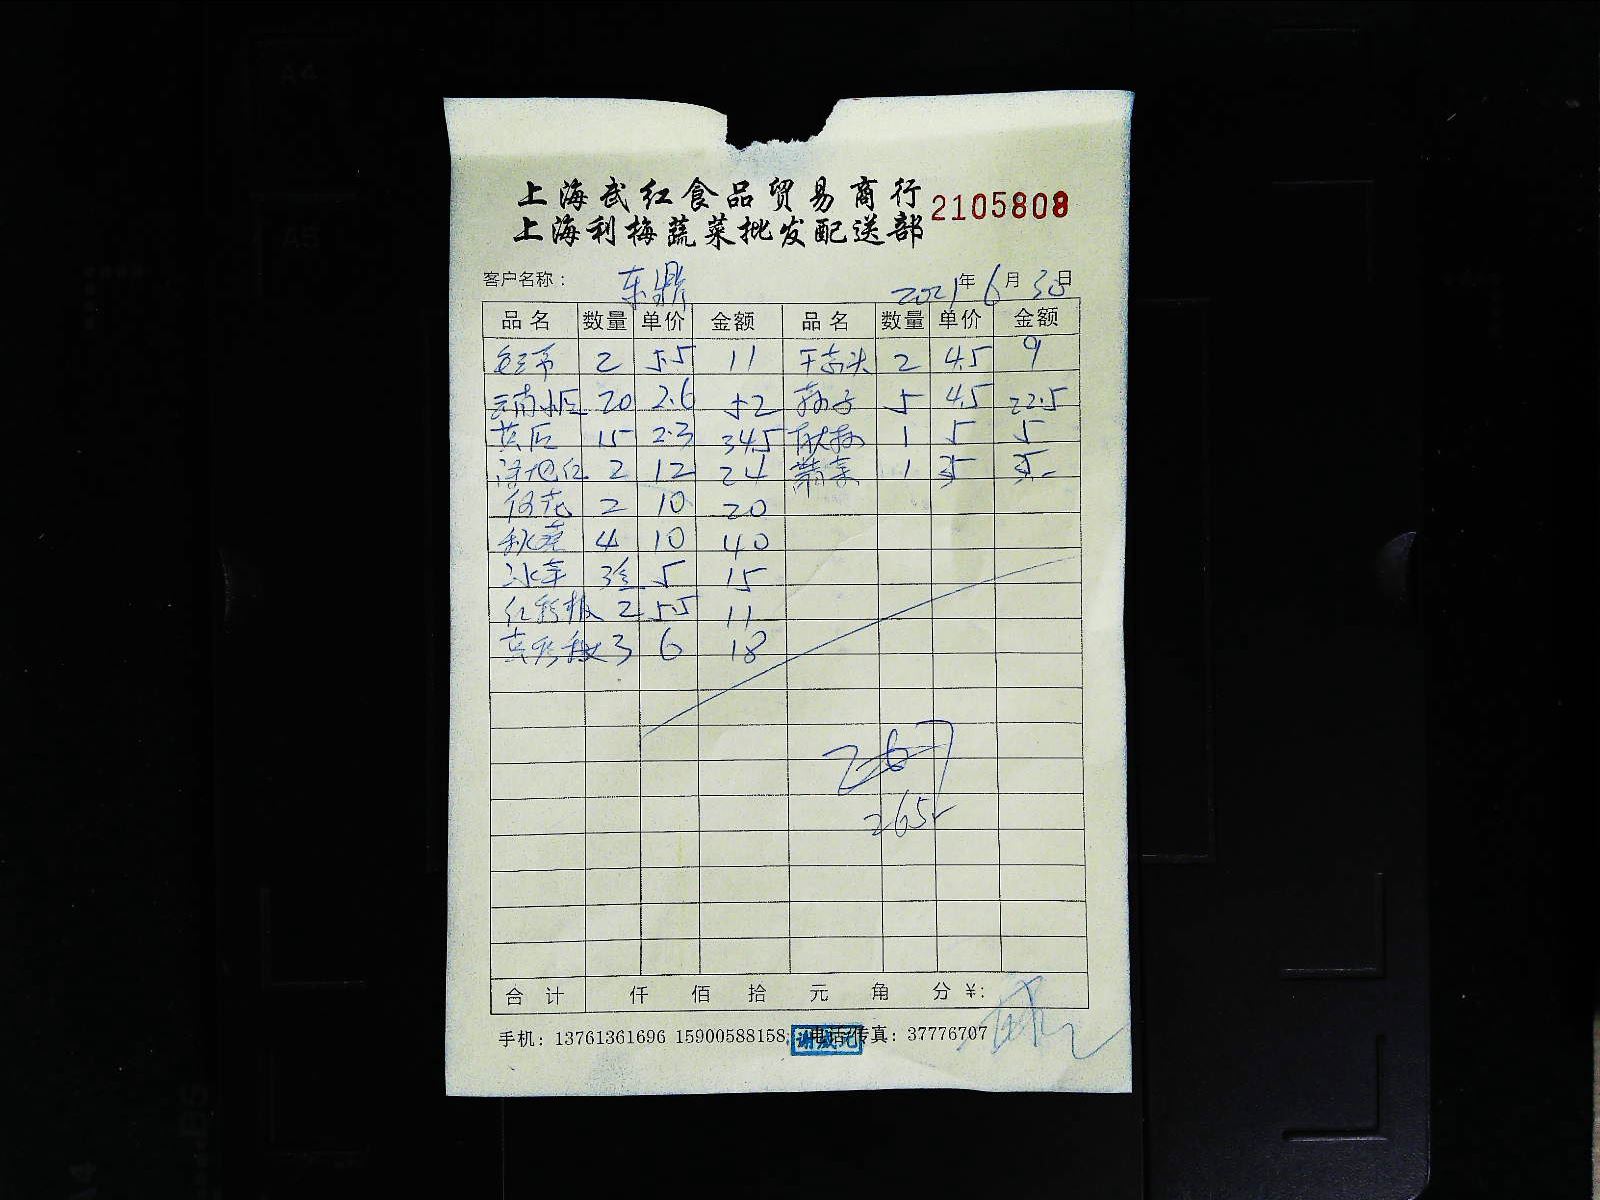 上海武红食品贸易商行
2105808
上海利梅蔬菜批发配送部
客户名称： 东鼎 2021年6月30日
品名 数量 单价 金额 品名 数量 单价 金额
2 5.5 11 2 4.5 9
云南小瓜 20 2.6 52 茄子 5 4.5 22.5
黄瓜 15 2.3 34.5 1 5 5
2 12 24 1
2 10 20
秋葵 4 10 40
冰草 3盒 5 15
红彩椒 2 5.5 11
黄彩椒 3 6 18
267
265
合计 仟 佰 拾 元 角 分 ¥:
手机: 13761361696 15900588158 电话/传真: 37776707